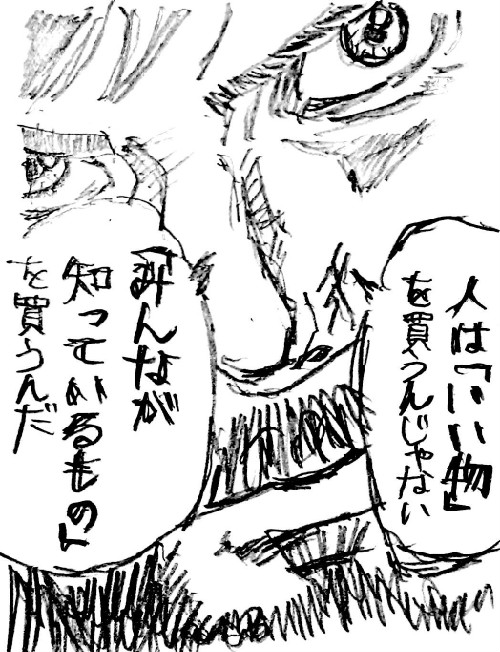 人は「いい物」
を買うんじゃない
「みんなが
知っているもの」
を買うんだ